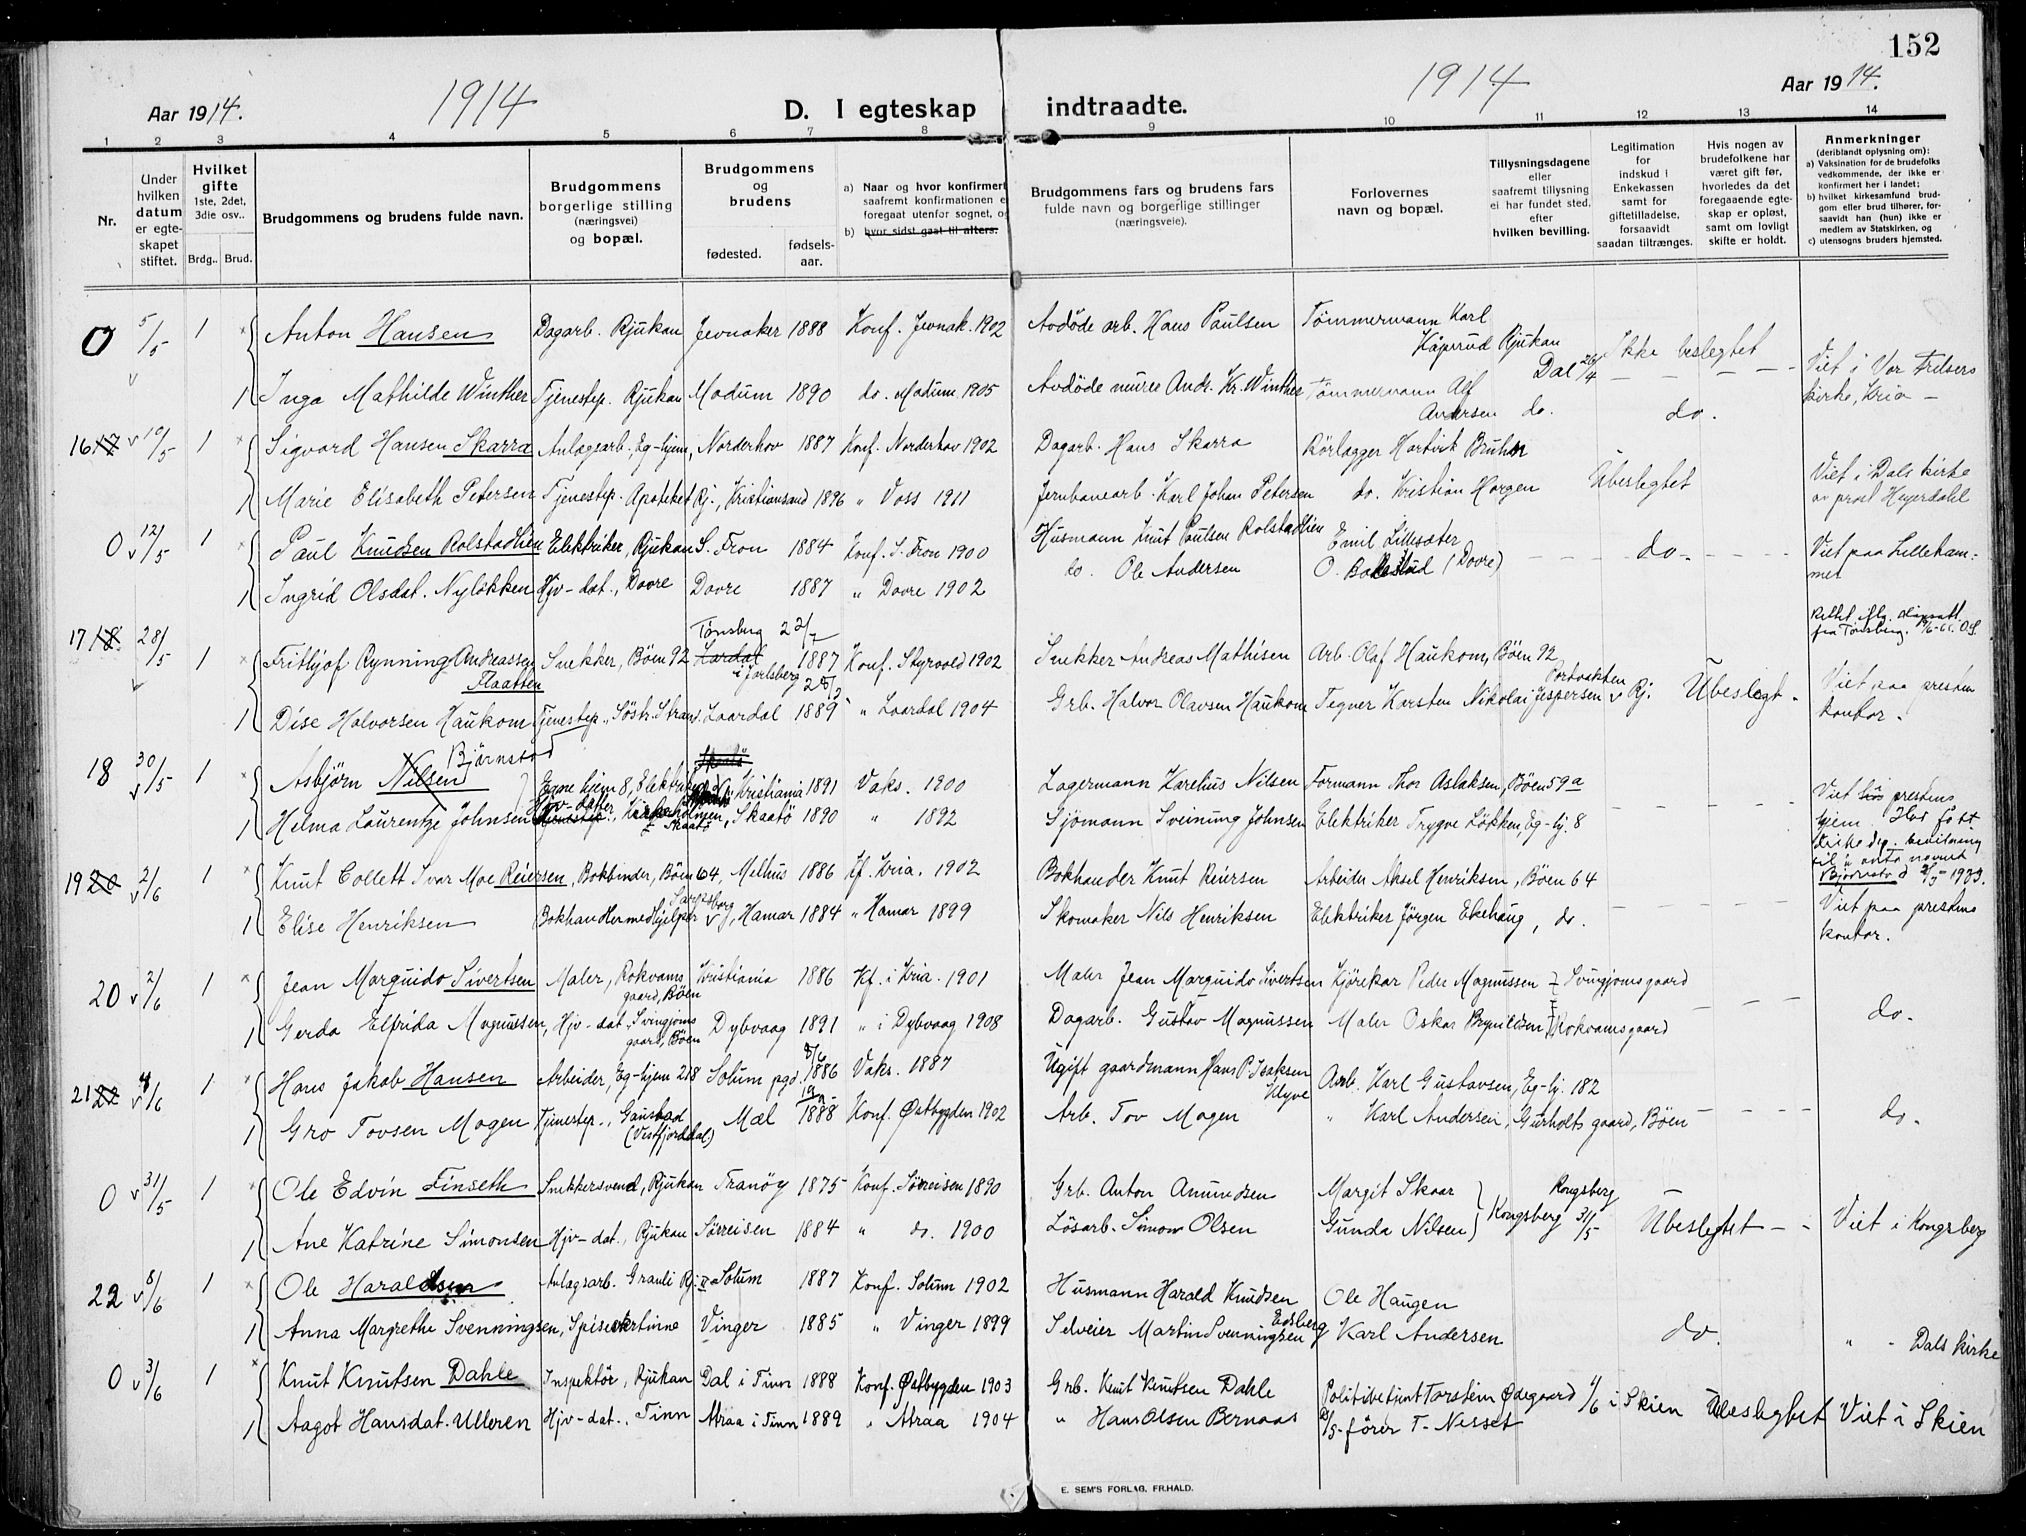 152
Aar 1914.
1914
D. I egteskap indtraadte.
1914
Aar 1914.
1 2 3 4 5 6 7 8 9 10 11 12 13 14
Nr.
Under hvilken datum er egteskapet stiftet.
Hvilket gifte 1ste, 2det, 3die osv..
Brdg.. Brud.
Brudgommens og brudens fulde navn.
Brudgommens borgerlige stilling (næringsvei) og bopæl.
Brudgommens og brudens
fødested.
fødselsaar.
a) Naar og hvor konfirmert saafremt konfirmationen er foregaat utenfor sognet, og
b) hvor sidst gaat til alters.
Brudgommens fars og brudens fars fulde navn og borgerlige stillinger (næringsveie).
Forlovernes navn og bopæl.
Tillysningsdagene eller saafremt tillysning ei har fundet sted, efter hvilken bevilling.
Legitimation for indskud i Enkekassen samt for giftetilladelse, forsaavidt saadan tiltrænges.
Hvis nogen av brudefolkene har været gift før, hvorledes da det foregaaende egteskap er opløst, samt om lovligt skifte er holdt.
Anmerkninger (deriblandt oplysning om):
a) Vaksination for de brudefolks vedkommende, der ikke er konfirmert her i landet;
b) hvilket kirkesamfund brudgom eller brud tilhører, forsaavidt han (hun) ikke er medlem av Statskirken, og
c) utensogns bruders hjemsted.
0 5/5 1 Anton Hansen Dagarb. Rjukan Jevnaker 1888 Konf. Jevnak. 1902 Avdöde arb. Hans Paulsen Tömmermann Karl Kåpsrud Rjukan Dal 26/4 Ikke beslegtet Viet i Vor Frelsers kirke, Kria
1 Inga Mathilde Winther Tjenestep. Rjukan Modum 1890 do. Modum 1905 Avdöde murer Andr. Kr. Winther Tömmermann Alf Andersen do. do.
16 17 10/5 1 Sigvard Hansen Skarra Anlægsarb., Eg-hjem, Norderhov 1887 Konf. Norderhov 1902 Dagarb. Hans Skarra Rörlægger Hartvik Bruhn Ubeslegtet Viet i Dals kirke av prost Heyerdahl
1 Marie Elisabeth Petersen Tjenestep. Apoteket Rj., Kristiansund 1896 " Voss 1911 Jernbanearb. Karl Johan Petersen do. Kristian Horgen
0 12/5 1 Paul Knudsen Rolstadlien Elektriker, Rjukan S. Fron 1884 Konf. S. Fron 1900 Husmann Knut Paulsen Rolstadlien Emil Lillesæter do. Viet paa Lillehammer
1 Ingrid Olsdat. Nylökken Hjv-dat., Dovre Dovre 1887 " Dovre 1902 do. Ole Andersen O. (Dovre)
17 18 28/5 1 Frithjof Rynning Andreassen Flaatten Snekker, Böen 92 Tønsberg Lardal i Jarlsberg 1887 Konf. Styrvold 1902 Snekker Andreas Mathisen Arb. Olaf Haukom, Böen 92 Ubeslegt. Viet paa prestens kontor.
1 Dise Halvorsen Haukom Tjenestep., Söstr. Strand. Laardal 1889 " Laardal 1904 Grb. Halvor Olavsen Haukom Tegner Karsten Nikolai Jespersen Portvakten v Rj.
18 30/5 1 Asbjörn Nilsen Bjørnstad Egne hjem 8, Elektriker Kristiania 1891 Vaks. 1900 Lagermann Karelius Nilsen Formann Thor Aslaksen, Böen 59a Viet hos prestens hjem. Har fått Kirkedep. bevilning til å anta navnet Bjørnstad 1923.
1 Helma Laurentze Johnsen Hjv-datter Tjenestep., Skaatö 1890 " 1892 Sjömann Sveinung Johnsen Elektriker Trygve Løkken, Eg-hj. 8
19 20 2/6 1 Knut Collett Ivar Moe Reiersen, Bokbinder, Böen 64, Melhus 1886 Kf. Kria. 1902 Bokhandler Knut Reiersen Arbeider Aksel Henriksen, Böen 64 Viet paa prestens kontor.
1 Elise Henriksen Bokhandlermedhjelper Sarpsborg, Hamar 1884 " Hamar 1899 Skomaker Nils Henriksen Elektriker Jörgen Ekehaug, do.
20 2/6 1 Jean Marquido Sivertsen Maler, Rokvamsgaard, Böen Kristiania 1886 Kf. i Kria. 1901 Maler Jean Marquido Sivertsen Kjörekar Peder Magnussen Svingjomsgaard do.
1 Gerda Elfrida Magnussen, Hjv-dat., Svingjomsgaard, Böen Dybvaag 1891 " i Dybvaag 1908 Dagarb. Gustav Magnussen Maler Oskar Brynildsen Rokvamsgaard
21 22 4/6 1 Hans Jakob Hansen Arbeider, Eg-hjem 218 Solum pgd. 1886 Vaks. 1887 Ugift gaardmann Hans P. Isaksen Klyve Arb. Karl Gustavsen, Eg-hj. 182 do.
1 Gro Tovsen Mogen Tjenestep., Gaustad (Vestfjorddal) Mæl 1888 Konf. Østbygden 1902 Arb. Tov Mogen " Karl Andersen, Gurholts gaard, Böen
0 31/5 1 Ole Edvin Finseth Snekkersvend, Rjukan Tranöy 1875 Konf. Sörreisen 1890 Grb. Anton Amundsen Margit Skaar Kongsberg Kongsberg 31/5 Ubeslegtet Viet i Kongsberg
1 Ane Katrine Simonsen Hjv-dat., Rjukan Sörreisen 1884 " do. 1900 Lösarb. Simon Olsen Gunda Nilsen
22 8/6 1 Ole Haraldsen Anlægsarb. Grauli Rj. Solum 1887 Konf. Solum 1902 Husmann Harald Knudsen Ole Haugen do. " Dals kirke
1 Anna Margrethe Svenningsen, Spisevertinne Vinger 1885 " Vinger 1899 Selveier Martin Svenningsen Edsberg Karl Andersen
0 3/6 1 Knut Knutsen Dahle Inspektör, Rjukan Dal i Tinn 1888 Konf. Østbygden 1903 Grb. Knut Knutsen Dahle Politibetjent Torstein Ødegaard i Skien Ubeslegtet Viet i Skien
1 Aagot Hansdat. Ulleren Hjv-dat., Tinn Atraa i Tinn 1889 " Atraa 1904 " Hans Olsen Bernaas fører T. Nisset
E. SEM'S FORLAG, FR.HALD.